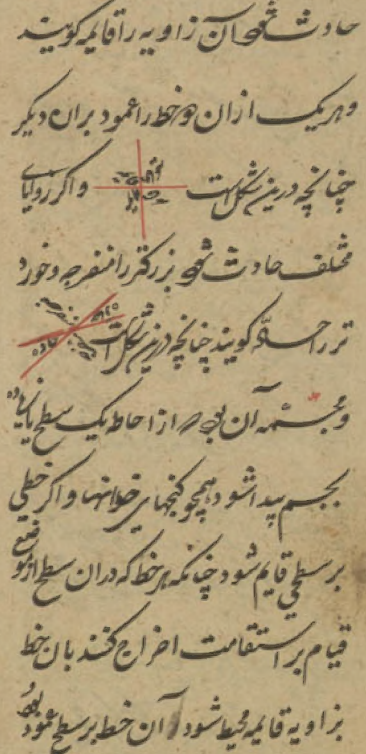 حادث شود آن زاویه را قایمه کویند
وهریک از ان دو خط را عمود بران دیکر
چنانچه درین شکل است واکر زوایای
مختلف حادث شود بزرکتر را منفرجه وخورد
تر را حاده کویند چنانچه درین شکل است
ومجسمه آن بود که از احاطه یک سطح یا زیاده
بجسم پیدا شود همچو کنجهای خانها واکر خطی
بر سطحی قایم شود چنانکه هر خط که دران سطح از موضع
قیام بر استقامت اخراج کنند بان خط
بزاویه قایمه محیط شود آن خط بر سطح عمود بود